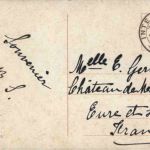 Souvenir
B S.
Melle E. Ger
Château de
Eure et
Fran
INTE